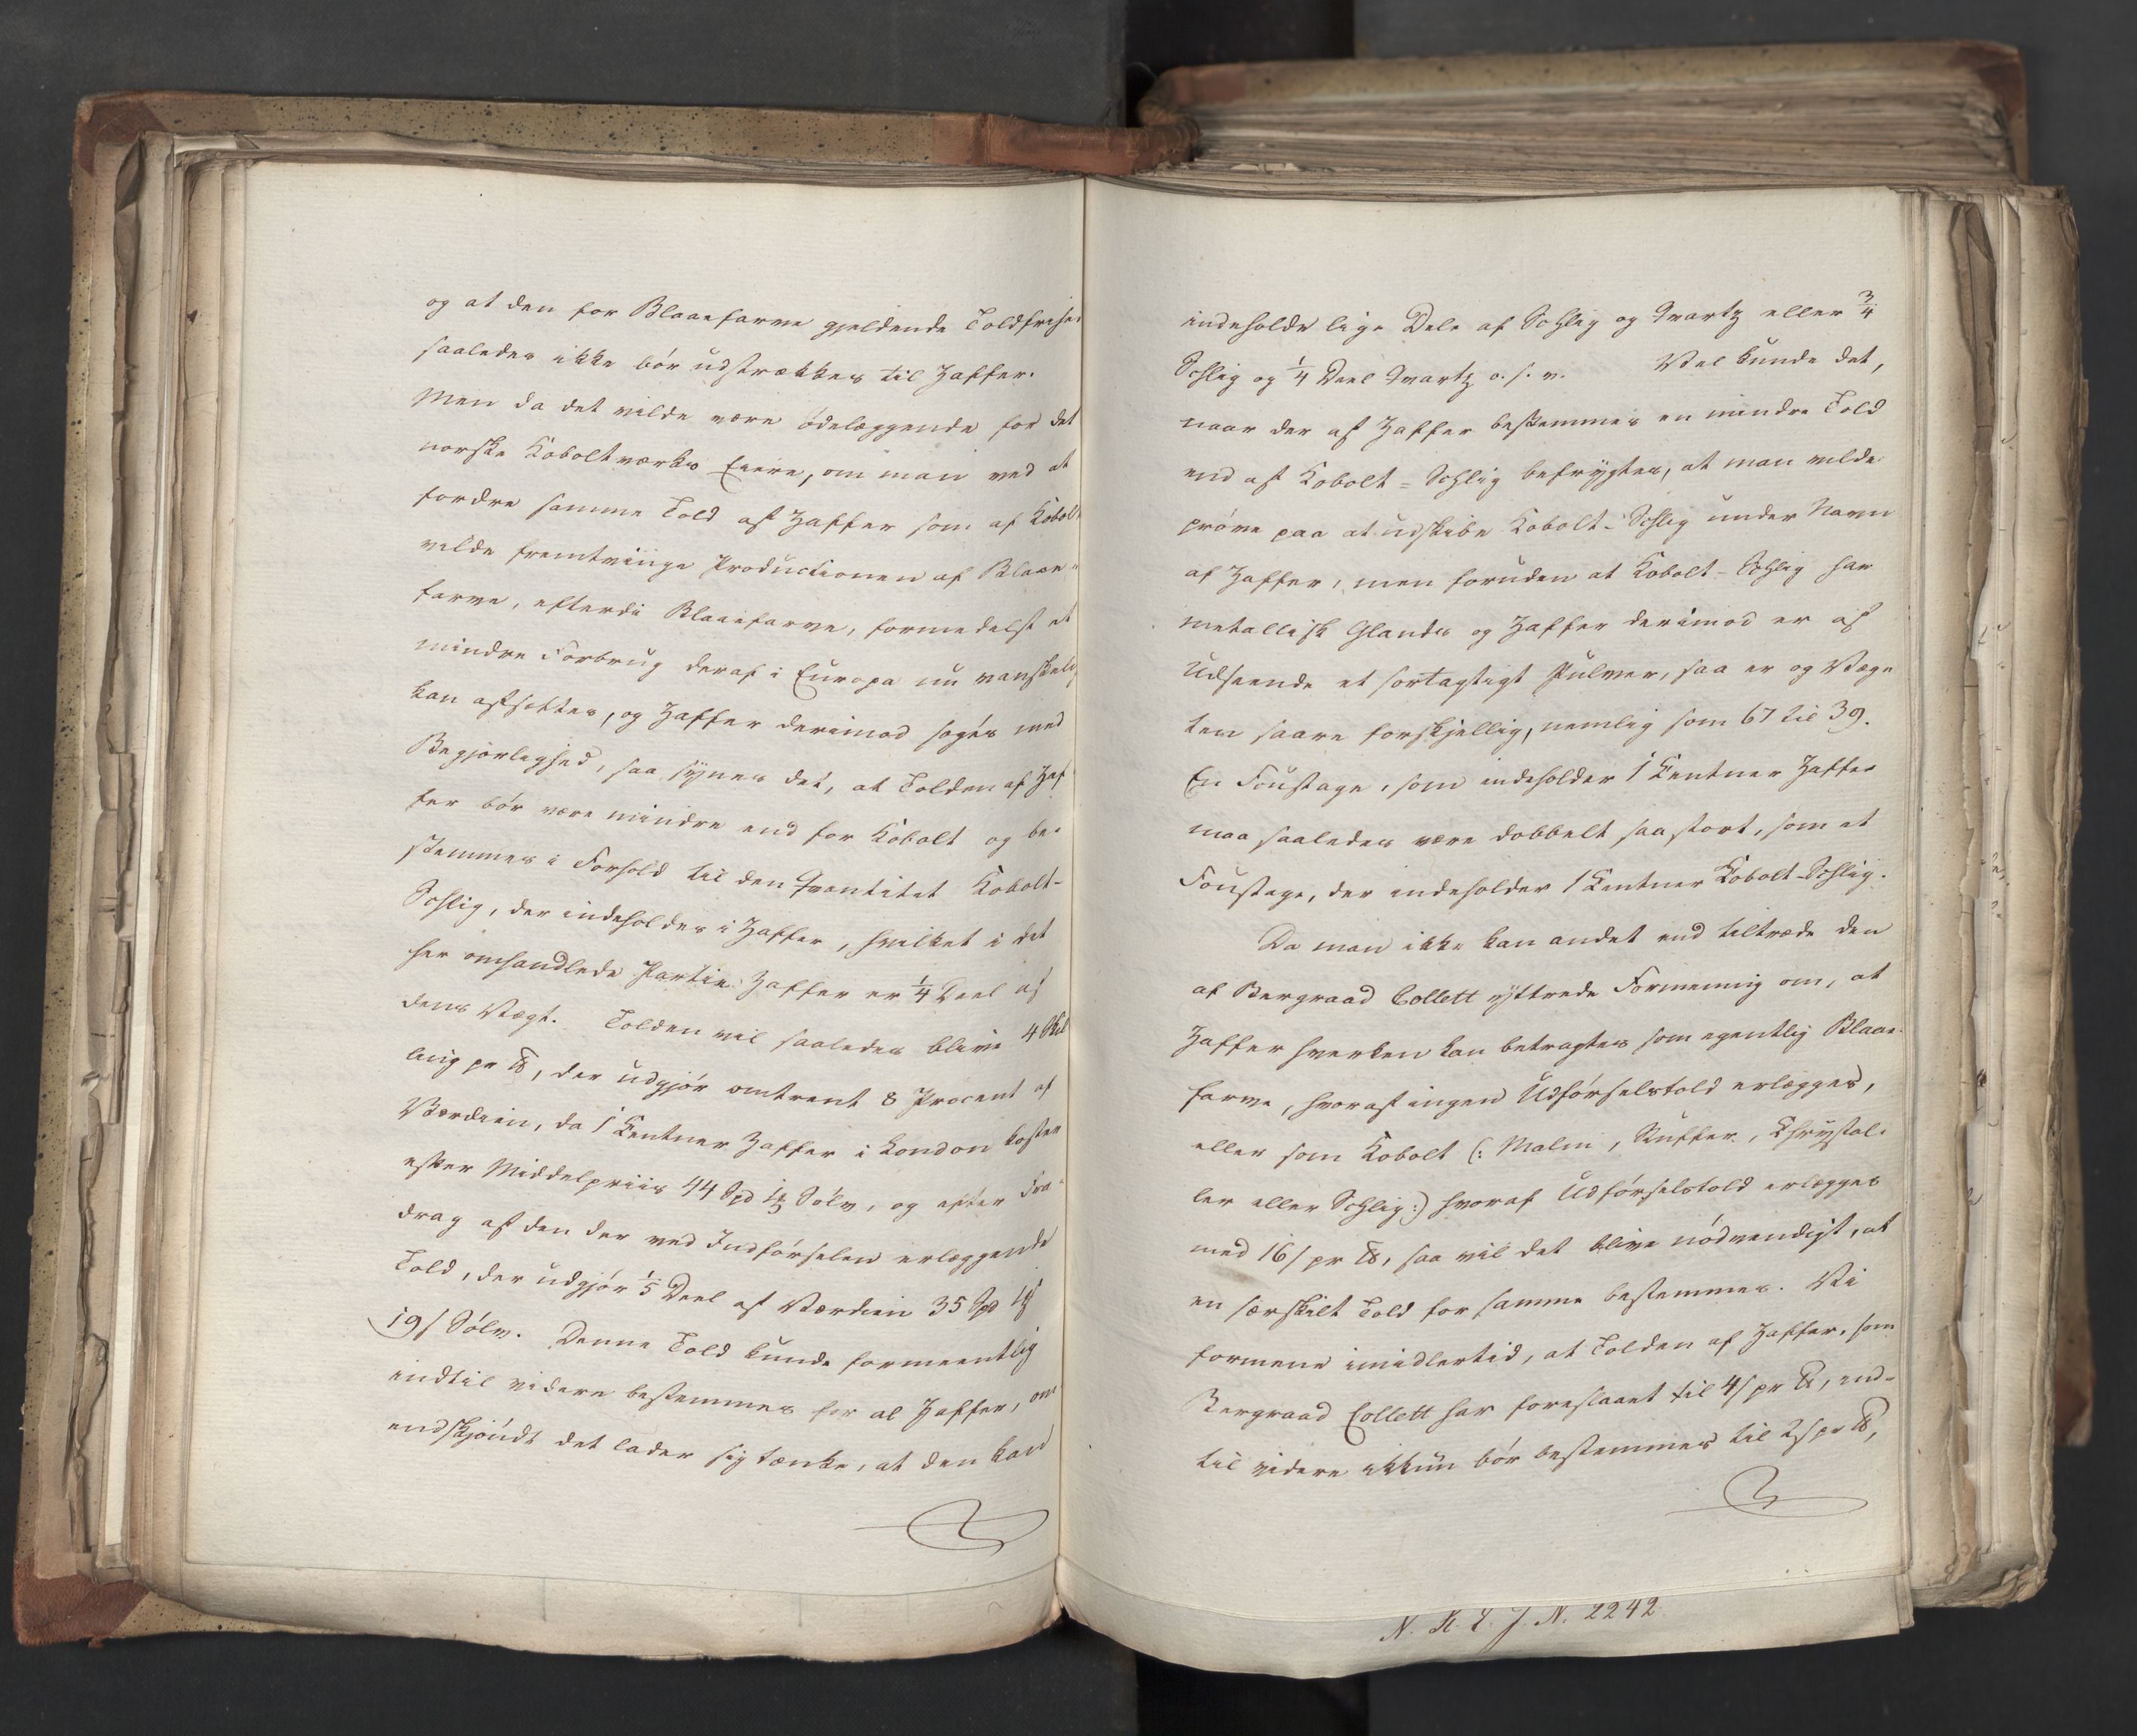 og at den for Blaaefarve gjeldende Toldfrihed
saaledes ikke bör udstrækkes til Zaffer.
Men da det vilde være ödelæggende for det
norske Koboltværks Eiere, om man ved at
fordre samme Told af Zaffer som af Kobolt
vilde fremtvinge Productionen af Blaae-
farve, efterdi Blaaefarve, formedelst et
mindre Forbrug deraf i Europa nu vanskelig
kan afsættes, og Zaffer derimod söges med
Begjerlighed, saa synes det, at Tolden af Zaf
fer bör være mindre end for Kobolt og be-
stemmes i Forhold til den Qvantitet Kobolt-
Schlig, der indeholdes i Zaffer, hvilket i det
her omhandlede Partie Zaffer er 1/4 Deel af
dens Vægt. Tolden vil saaledes blive 4 Skil
ling pr ℔, der udgjör omtrent 8 Procent af
Værdien, da 1 Centner Zaffer i London koster
efter Middelpriis 44 Spd Sölv, og efter Fra-
drag af den der ved Indförselen erlæggende
Told, der udgjör 1/5 Deel af Værdien 35 Spd
19 s Sölv. Denne Told kunde formeentlig
indtil videre bestemmes for al Zaffer, om
endskjöndt det lader sig tænke, at den kan
indeholde lige Dele af Schlig og Qvartz eller 3/4
Schlig og 1/4 Deel Qvartz o. s. v. Vel kunde det,
naar der af Zaffer bestemmes en mindre Told
end af Kobolt-Schlig befrygtes, at man vilde
pröve paa at udskibe Kobolt-Schlig under Navn
af Zaffer, men foruden at Kobolt-Schlig har
metallisk Glands og Zaffer derimod er af
Udseende et sortagtigt Pulver, saa er og Væg
ten saare forskjellig, nemlig som 67 til 39.
En Foustage, som indeholder 1 Centner Zaffer
maa saaledes være dobbelt saa stort, som et
Foustage, der indeholder 1 Centner Kobolt-Schlig.
Da man ikke kan andet end tiltræde den
af Bergraad Collett yttrede Formening om, at
Zaffer hverken kan betragtes som egentlig Blaae-
farve, hvoraf ingen Udförselstold erlægges,
eller som Kobolt (: Malm, Kuffer, Chrystal-
ler eller Schlig:) hvoraf Udförselstold erlægges
med 16 s pr ℔, saa vil det blive nödvendigt, at
en særskilt Told for samme bestemmes. Vi
formene imidlertid, at Tolden af Zaffer, som
Bergraad Collett har foreslaaet til 4 s pr ℔, ind-
til videre ikkun bör bestemmes til 2 s pr ℔,
N. R. T. J. N. 2242